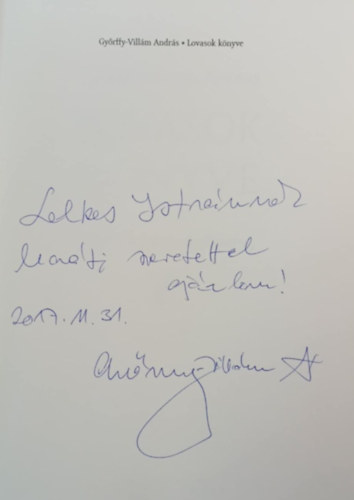 Győrffy-Villám András • Lovasok könyve
Lelkes Istvánnak
baráti szeretettel
ajánlom!
2017. 11. 31.
Győrffy-Villám A